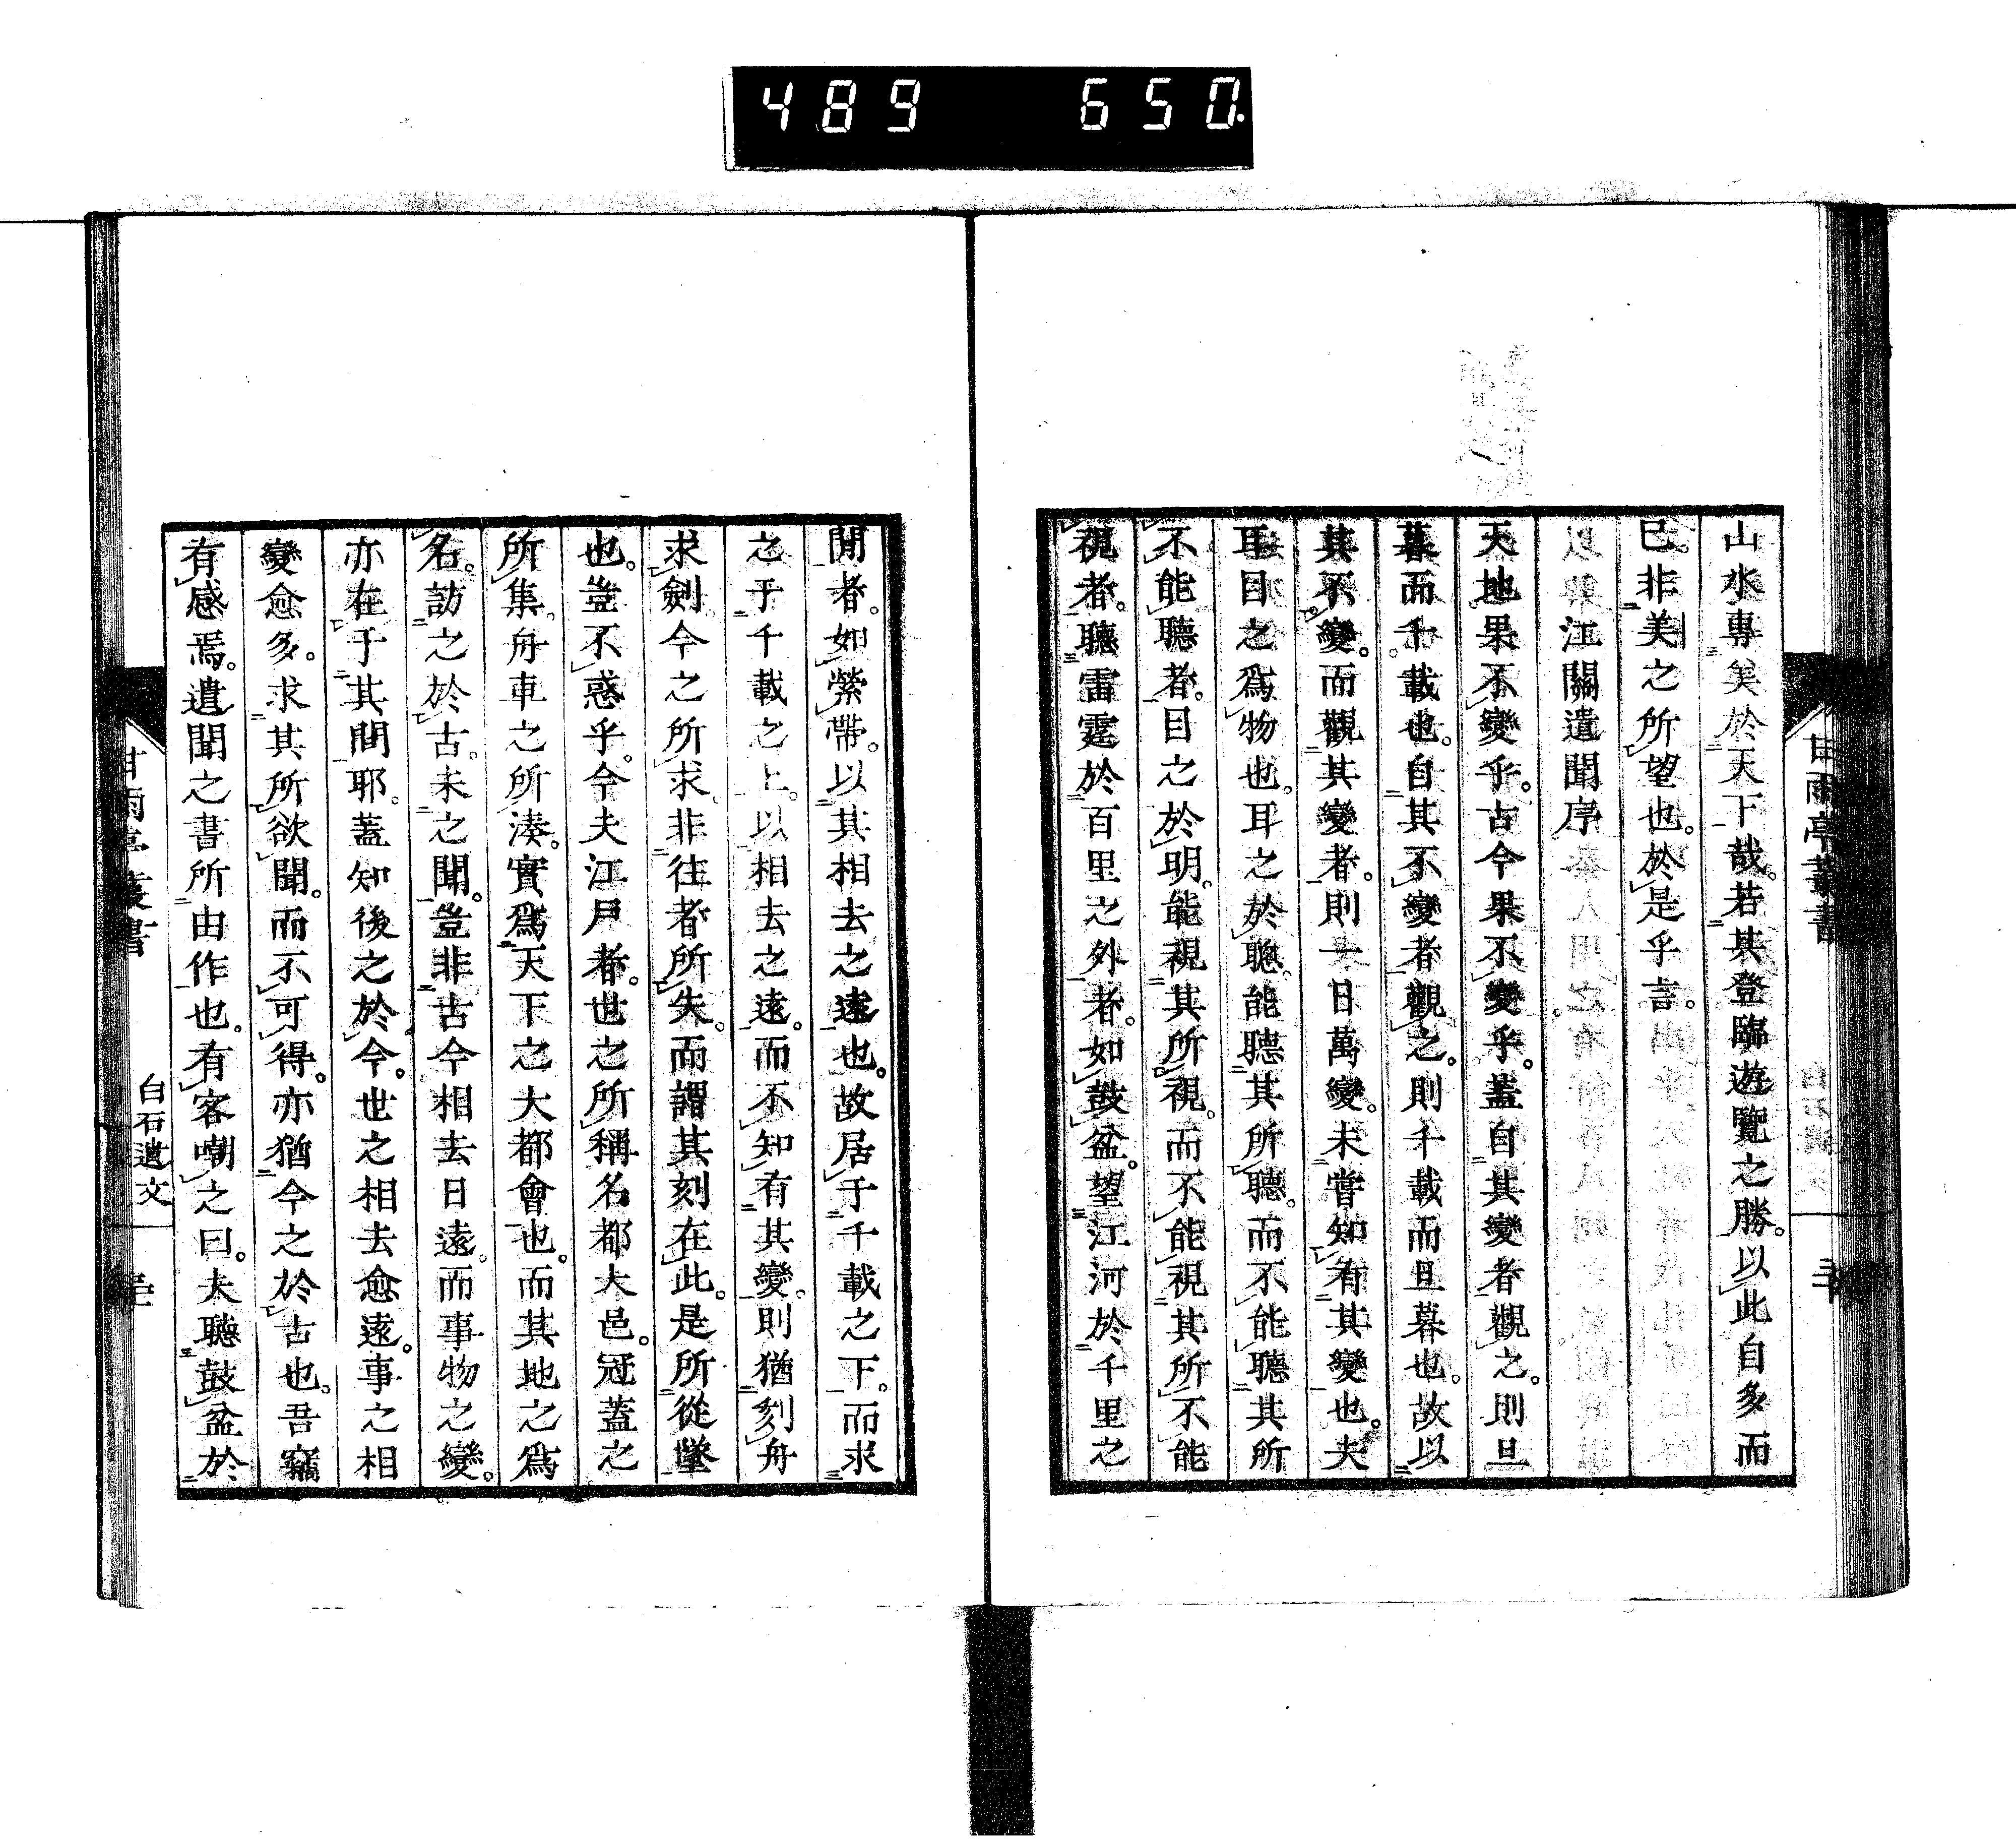 489 650
山水專矣於天下哉。若其登臨遊覽之勝。以此自多而
已。非美之所望也。於是乎言。
江關遺聞序
天地果不變乎。古今果不變乎。蓋自其變者觀之。則旦
暮而千載也。自其不變者觀之。則千載而旦暮也。故以
其不變。而觀其變者。則一日萬變。未嘗知有其變也。夫
耳目之爲物也。耳之於聰。能聽其所聽。而不能聽其所
不能聽者。目之於明。能視其所視。而不能視其所不能
視者。聽雷霆於百里之外者。如鼓盆。望江河於千里之
甘雨亭叢書
間者。如縈帶。以其相去之遠也。故居于千載之下。而求
之乎千載之上。以相去之遠。而不知有其變。則猶刻舟
求劍今之所求非往者所失。而謂其刻在此。是所從墜
也。豈不惑乎。今夫江戶者。世之所稱名都大邑。冠蓋之
所集。舟車之所湊。實爲天下之大都會也。而其地之爲
名。訪之於古。未之聞。豈非古今相去日遠。而事物之變。
亦在于其間耶。蓋知後之於今。世之相去愈遠。事之相
變愈多。求其所欲聞。而不可得。亦猶今之於古也。吾竊
有感焉。遺聞之書所由作也。有客嘲之曰。夫聽鼓盆於
甘雨亭叢書
白石遺文